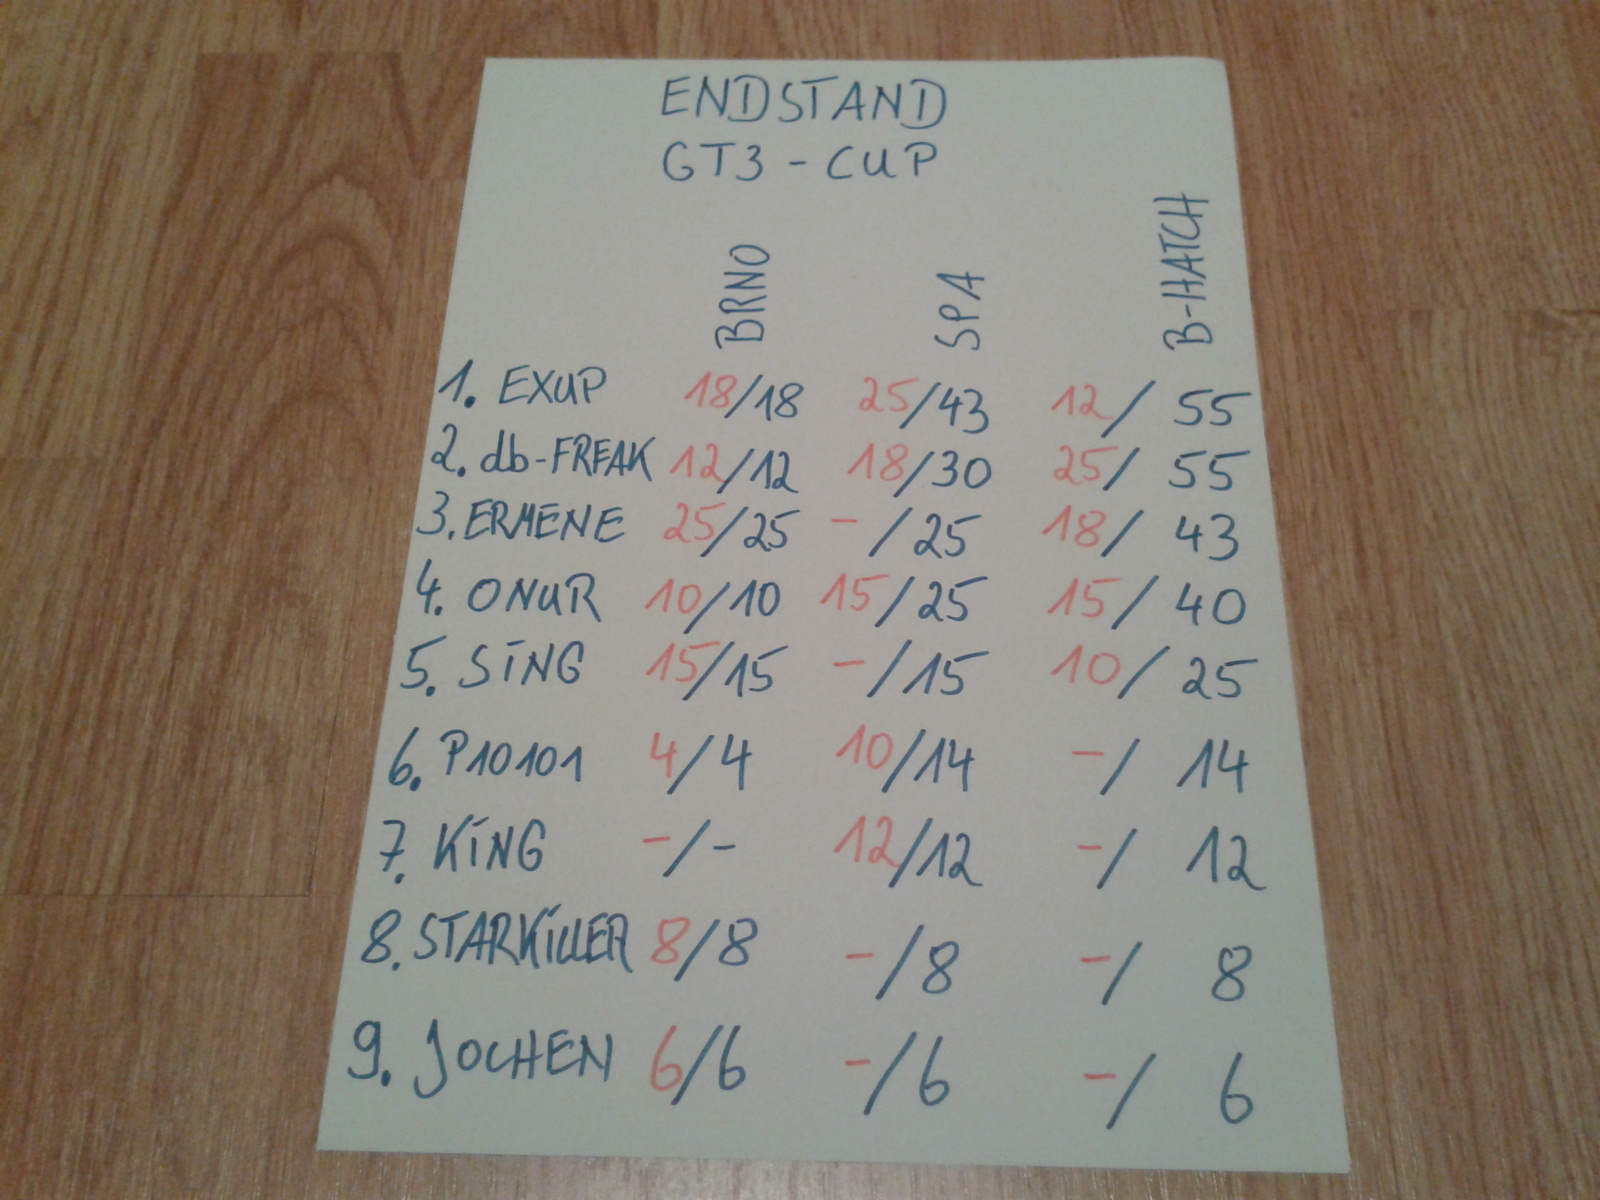 ENDSTAND
GT3 - CUP
BRNO SPA B-HATCH
1. EXUP 18/18 25/43 12/ 55
2. db-FREAK 12/12 18/30 25/ 55
3. ERMENE 25/25 - /25 18/ 43
4. ONUR 10/10 15/25 15/ 40
5. SING 15/15 -/15 10/ 25
6. P10101 4/4 10/14 -/ 14
7. KING -/- 12/12 -/ 12
8. STARKILLER 8/8 -/8 -/ 8
9. JOCHEN 6/6 -/6 -/ 6